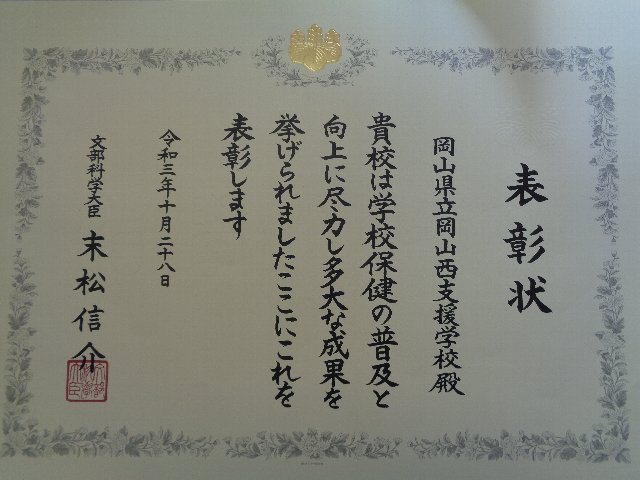 表彰状
岡山県立岡山西支援学校殿
貴校は学校保健の普及と
向上に尽力し多大な成果を
挙げられましたここにこれを
表彰します
令和三年十月二十八日
文部科学大臣 末松信介